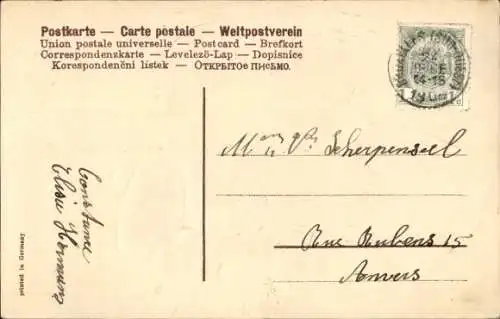 Postkarte — Carte postale — Weltpostverein
Union postale universelle — Postcard — Brefkort
Correspondenzkarte — Levelező-Lap — Dopisnice
Korespondenční lístek — Открытое письмо.
14-15
1
Scherpenseel
Rue Rubens 15
Anvers
Constance
Elise
Printed in Germany